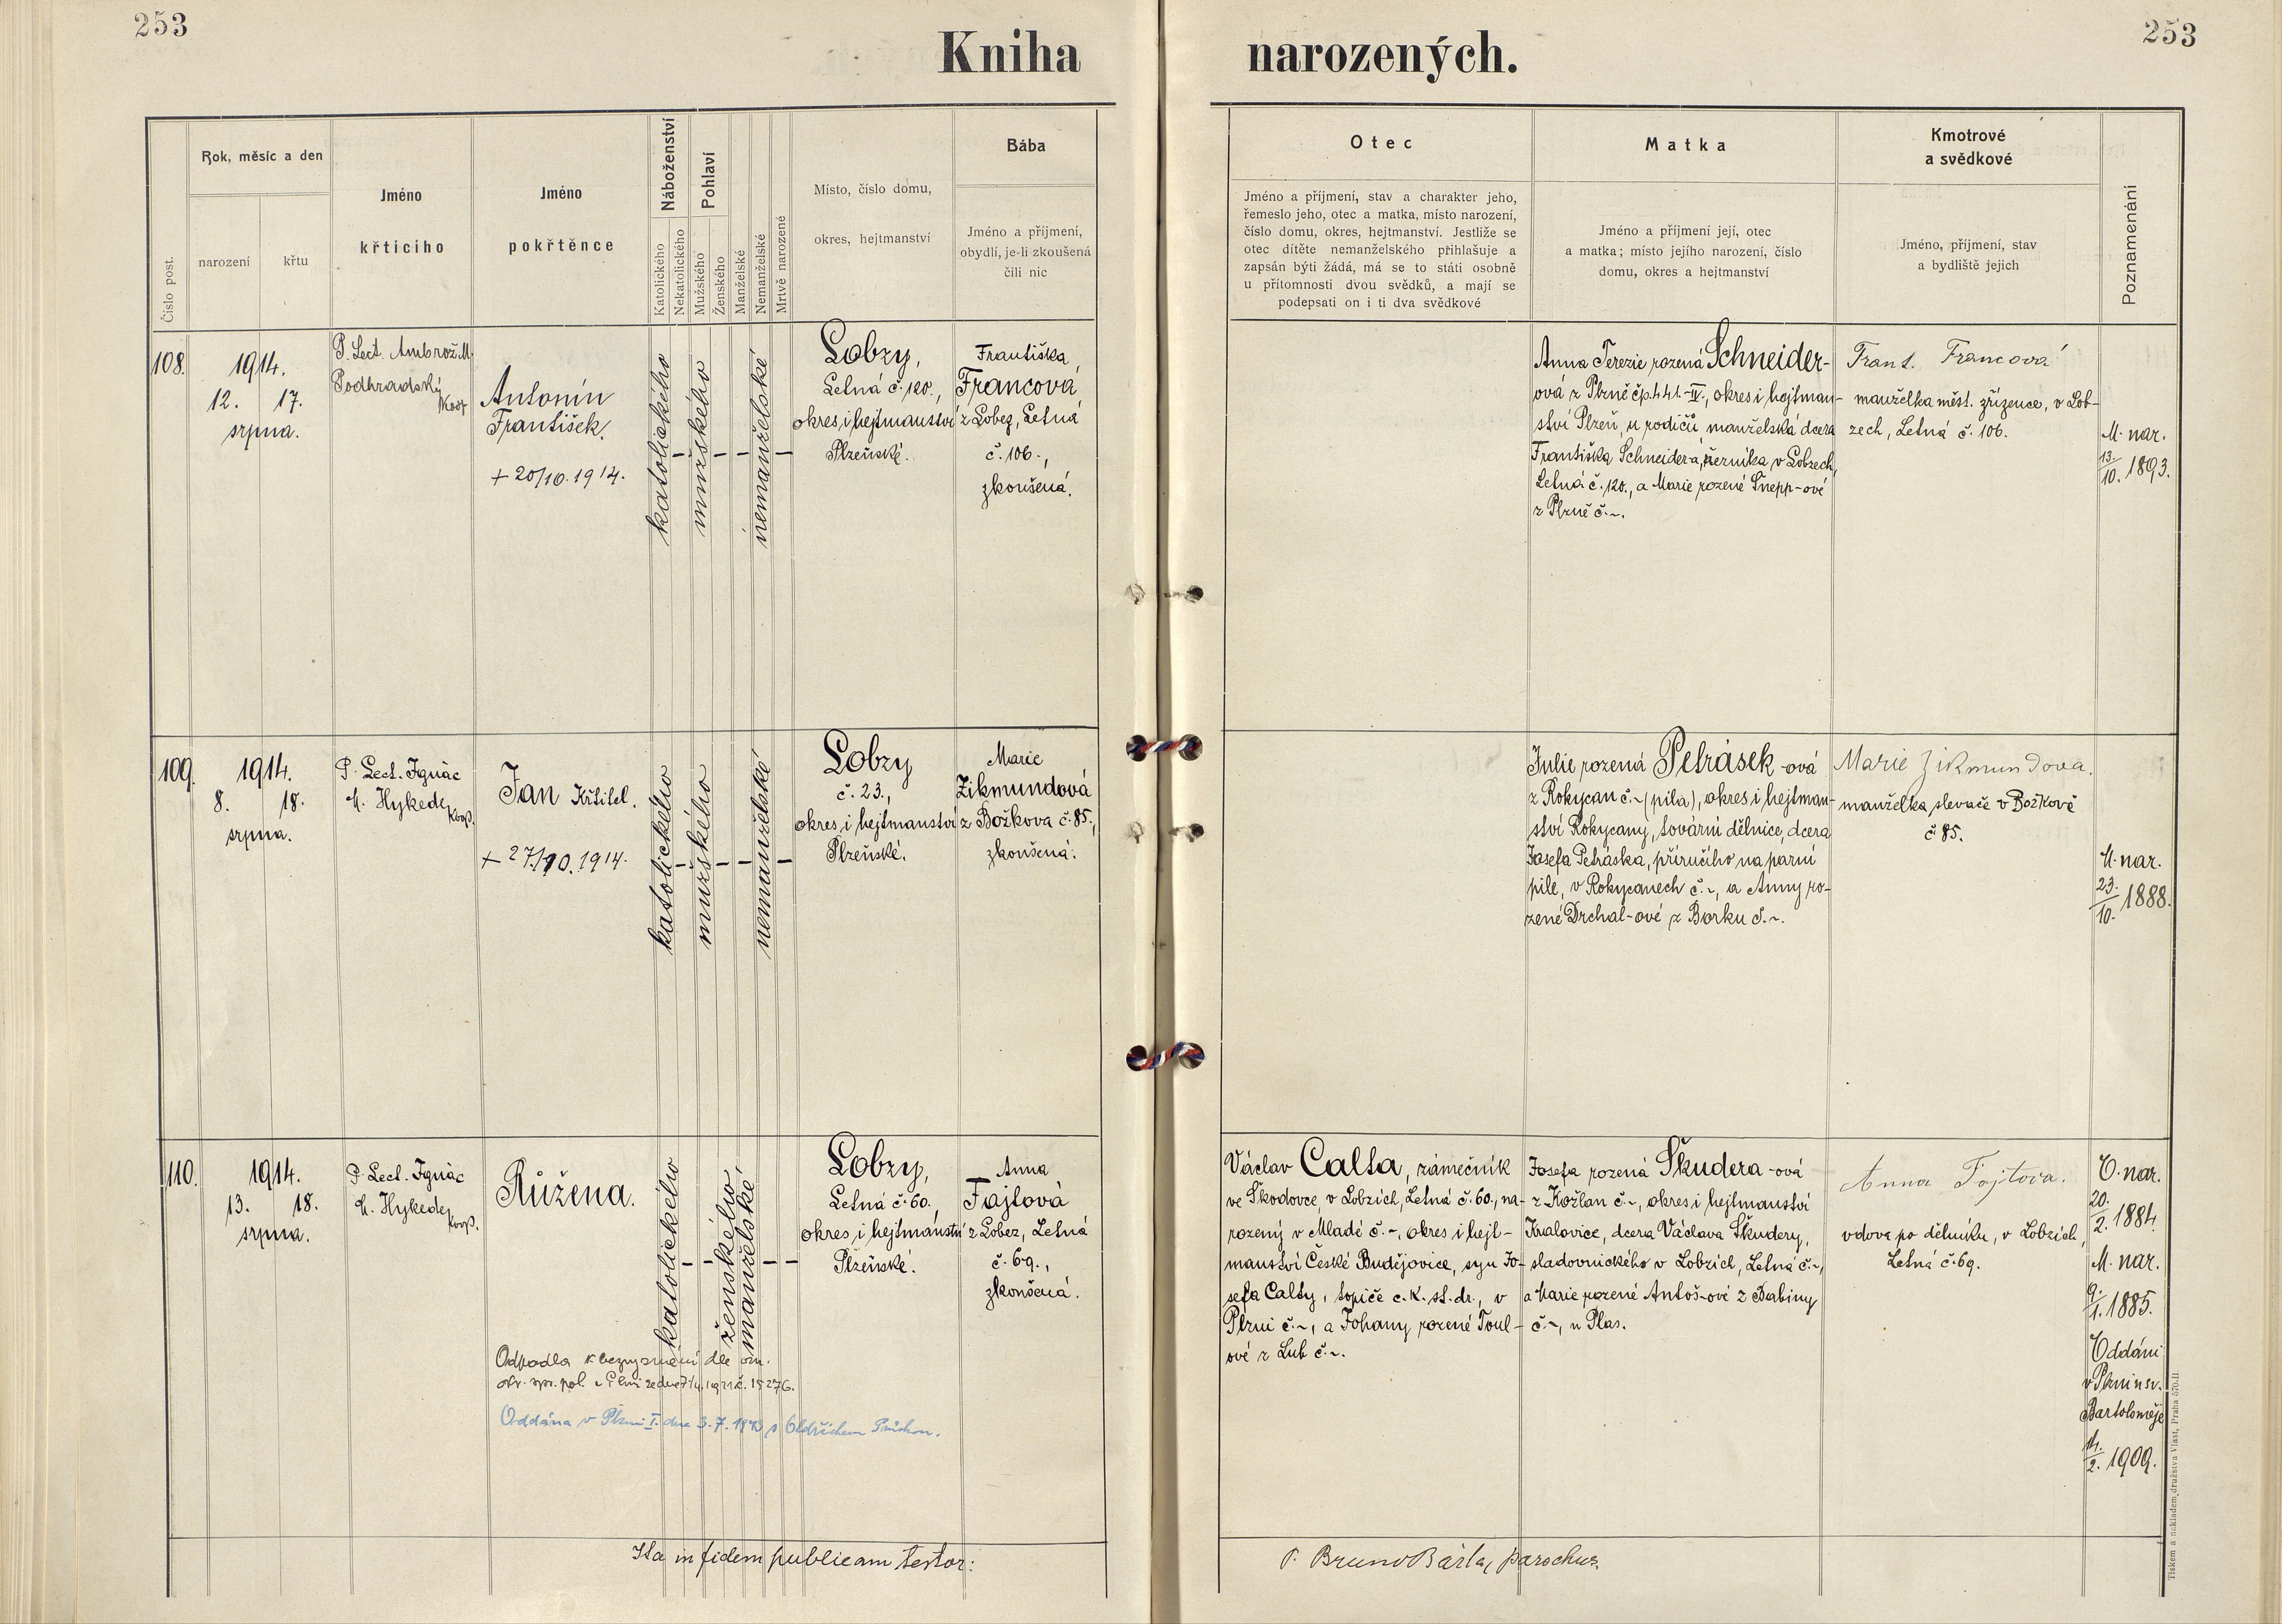 253
253
Kniha narozených.
Číslo post.
Rok, měsíc a den
narození
křtu
Jméno
křticího
Jméno
pokřtěnce
Náboženství
Katolického
Nekatolického
Pohlaví
Mužského
Ženského
Manželské
Nemanželské
Mrtvě narozené
Místo, číslo domu,
okres, hejtmanství
Bába
Jméno a příjmení,
obydlí, je-li zkoušená
čili nic
Otec
Jméno a příjmení, stav a charakter jeho,
řemeslo jeho, otec a matka, místo narození,
číslo domu, okres, hejtmanství. Jestliže se
otec dítěte nemanželského přihlašuje a
zapsán býti žádá, má se to státi osobně
u přítomnosti dvou svědků, a mají se
podepsati on i ti dva svědkové
Matka
Jméno a příjmení její, otec
a matka; místo jejího narození, číslo
domu, okres a hejtmanství
Kmotrové
a svědkové
Jméno, příjmení, stav
a bydliště jejich
Poznamenání
108.
1914.
12. 17.
srpna.
P. Lect. Ambrož M.
Podhradský
Koop
Antonín
František.
+ 20/10. 1914.
katolického
mužského
nemanželské
Lobzy,
Letná č. 120.,
okres i hejtmanství
Plzeňské.
Františka
Francová
z Lobez, Letná
č. 106.,
zkoušená.
Anna Terezie rozená Schneider-
ová z Plzně čp. 441.-IV., okres i hejtman-
ství Plzeň, u rodičů, manželská dcera
Františka Schneidera, řezníka v Lobzech,
Letná č. 120., a Marie rozené Šnepp-ové
z Plzně č. ~.
Frant. Francová
manželka měst. zřízence, v Lob-
zech, Letná č. 106.
M. nar.
13./10. 1893.
109.
1914.
8. 18.
srpna.
P. Lect. Ignác
M. Hykede
Koop.
Jan Křtitel.
+ 27./10. 1914.
katolického
mužského
nemanželské
Lobzy
č. 23.,
okres i hejtmanství
Plzeňské.
Marie
Zikmundová
z Božkova č. 85.,
zkoušená.
Julie rozená Petrásek-ová
z Rokycan č. ~ (pila), okres i hejtman-
ství Rokycany, tovární dělnice, dcera
Josefa Petráska, příručího na parní
pile, v Rokycanech č. ~, a Anny ro-
zené Drchal-ové z Borku č. ~.
Marie Zikmundova.
manželka slevače v Božkově
č. 85.
M. nar.
23./10. 1888.
110.
1914.
13. 18.
srpna.
P. Lect. Ignác
M. Hykede
Koop.
Růžena.
katolického
ženského
manželské
Lobzy,
Letná č. 60.,
okres i hejtmanství
Plzeňské.
Anna
Fajtová
z Lobez, Letná
č. 69.,
zkoušená.
Václav Calta, zámečník
ve Škodovce, v Lobzích, Letná č. 60., na-
rozený v Mladé č. ~, okres i hejt-
manství České Budějovice, syn Jo-
sefa Calty, topiče c. k. st. dr., v
Plzni č. ~, a Johany rozené Toul-
ové z Lub č. ~.
Josefa rozená Škudera-ová
z Kožlan č. ~, okres i hejtmanství
Kralovice, dcera Václava Škudery,
sladovnického v Lobzích, Letná č. ~,
a Marie rozené Antoš-ové z Babiny
č. ~, u Plas.
Anna Fojtova.
vdova po dělníku, v Lobzích,
Letná č. 69.
O. nar.
20./2. 1884.
M. nar.
9./1. 1885.
Oddáni
v Plzni u sv.
Bartoloměje
14./2. 1909.
Odpadla k bezvyznání dle ozn.
spr. pol. v Plzni ze dne č. 15276.
Oddána v Plzni I. dne 3. 7. 1943 s Oldřichem
Ita in fidem publicam testor:
P. Bruno Bárta, parochus.
Tiskem a nákladem družstva Vlast, Praha 570-II